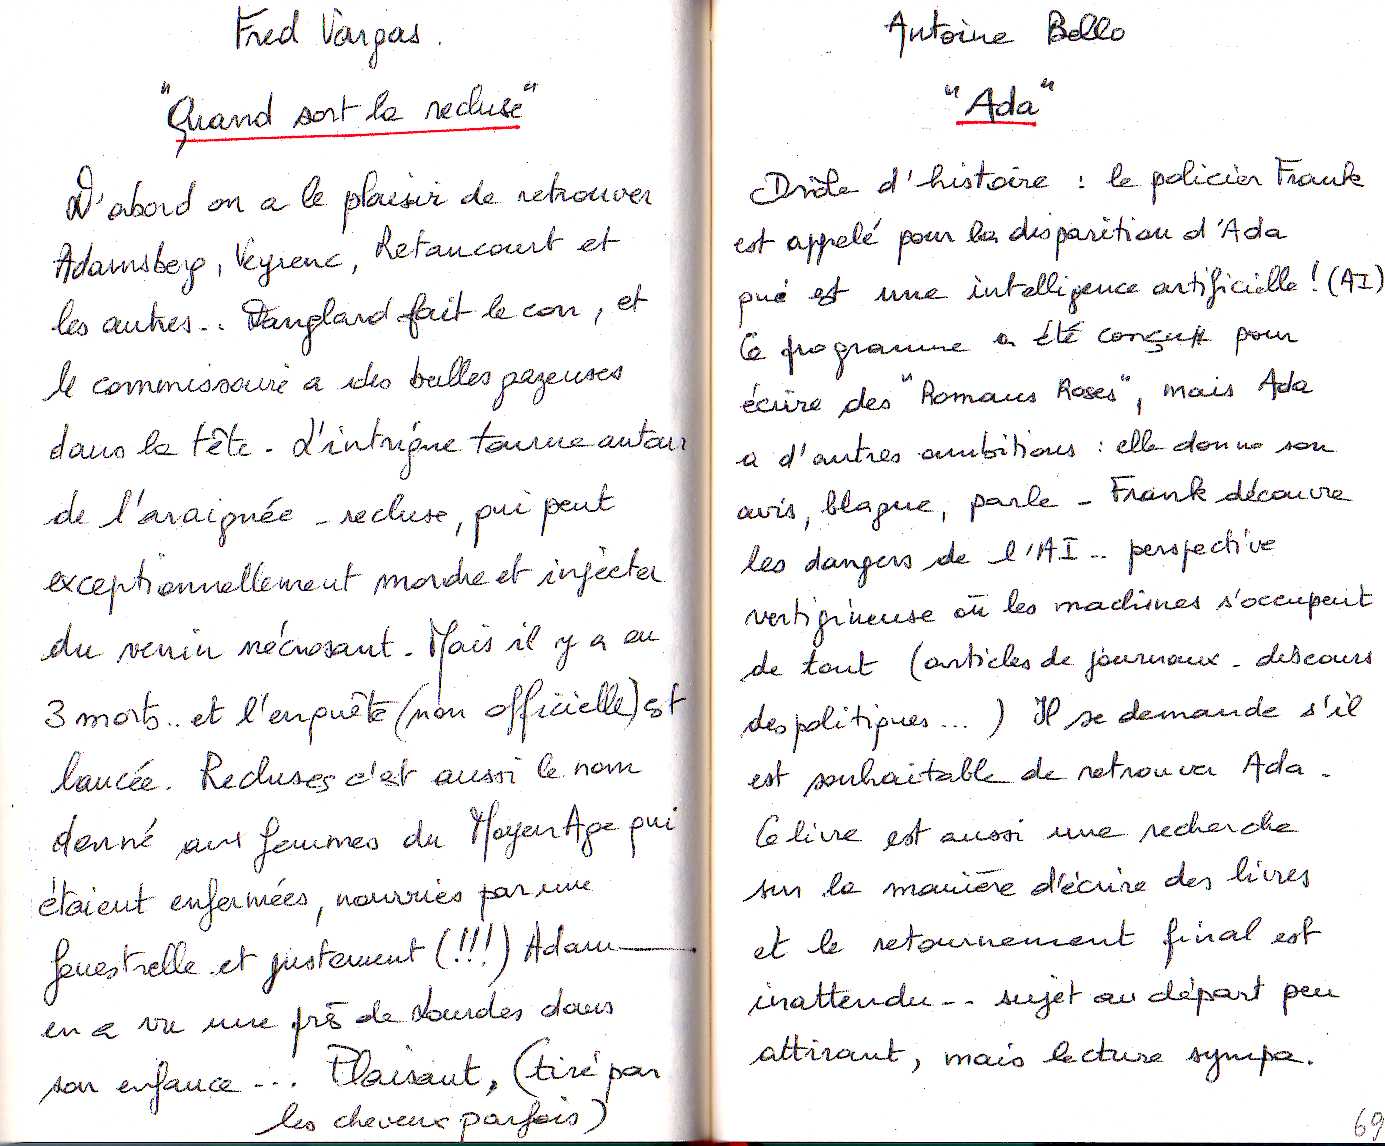 Fred Vargas.
"Quand sort la recluse"
D'abord on a le plaisir de retrouver
Adamsberg, Veyrenc, Retancourt et
les autres.. Danglard fait le con, et
le commissaire a des bulles gazeuses
dans la tête. L'intrigue tourne autour
de l'araignée - recluse, qui peut
exceptionnellement mordre et injecter
du venin nécrosant. Mais il y a eu
3 morts.. et l'enquête (non officielle) est
lancée. Recluses c'est aussi le nom
donné aux femmes du Moyen Age qui
étaient enfermées, nourries par une
fenestrelle et justement (!!!) Adam—
en a vu une près de Lourdes dans
son enfance ... Plaisant, (tiré par
les cheveux parfois)
Antoine Bello
"Ada"
Drôle d'histoire : le policier Frank
est appelé pour la disparition d'Ada
qui est une intelligence artificielle ! (AI)
Ce programme a été conçu pour
écrire des "Romans Roses", mais Ada
a d'autres ambitions : elle donne son
avis, blague, parle - Frank découvre
les dangers de l'AI .. perspective
vertigineuse où les machines s'occupent
de tout (articles de journaux - discours
des politiques ... ) Il se demande s'il
est souhaitable de retrouver Ada.
Ce livre est aussi une recherche
sur la manière d'écrire des livres
et le retournement final est
inattendu .. sujet au départ peu
attirant, mais lecture sympa.
69